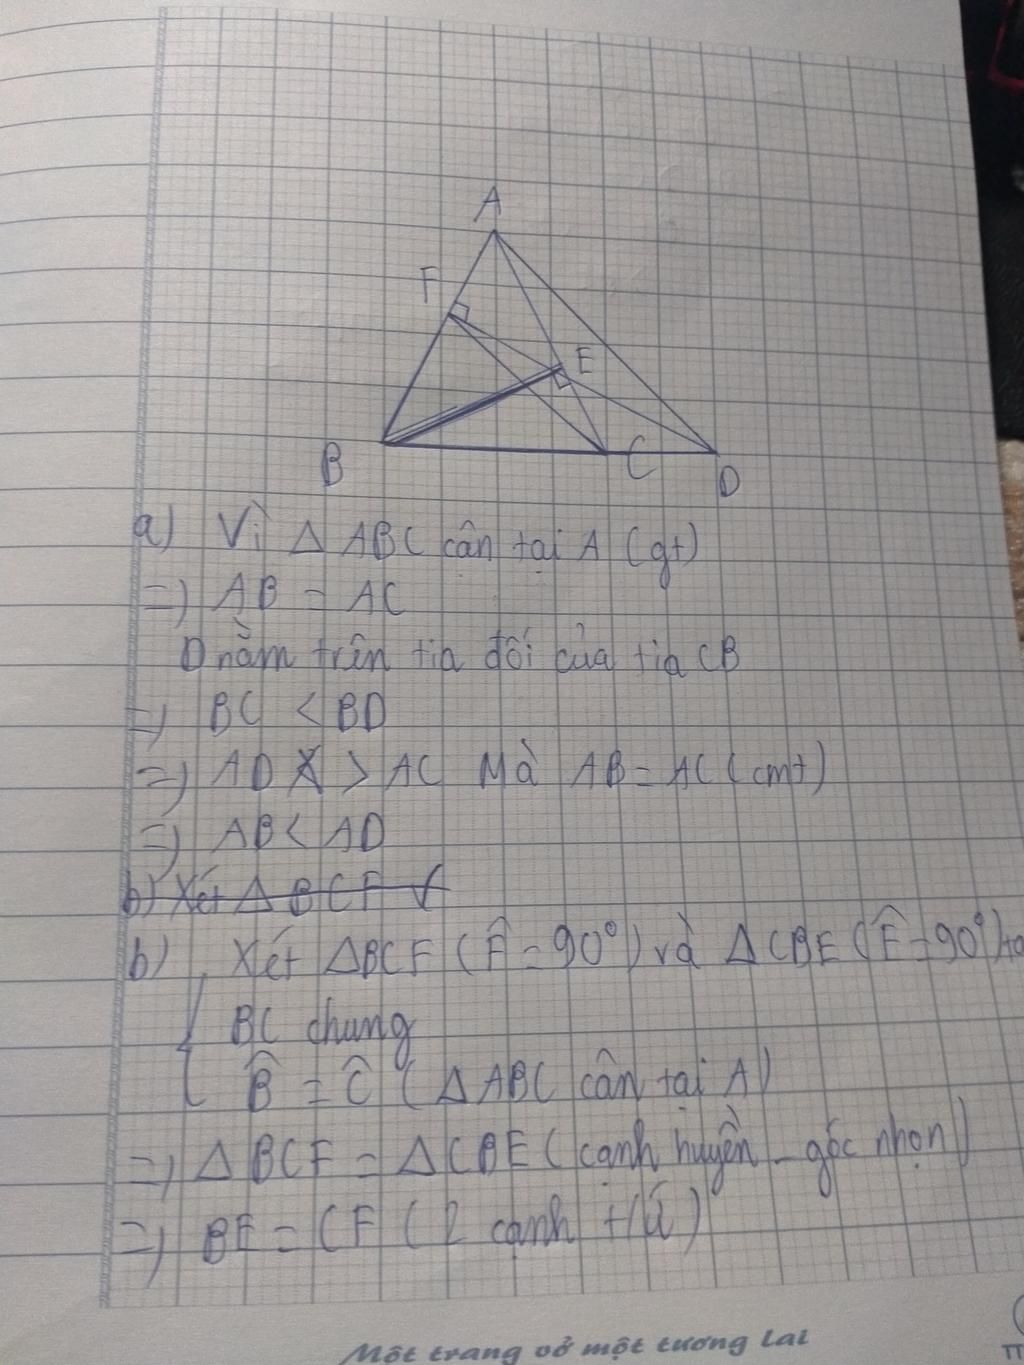 A
F
E
B
C
D
a) Vì Δ ABC cân tại A (gt)
=) AB = AC
D nằm trên tia đối của tia CB
=) BC < BD
=) AD > AC Mà AB = AC (cmt)
=) AB < AD
b) Xét Δ BCF
b) Xét ΔBCF (F̂ = 90°) và ΔCBE (Ê = 90°) ta
BC chung
B̂ = Ĉ (ΔABC cân tại A)
=) ΔBCF = ΔCBE (cạnh huyền - góc nhọn)
=) BE = CF (2 cạnh t/ứ)
Một trang vở một tương lai